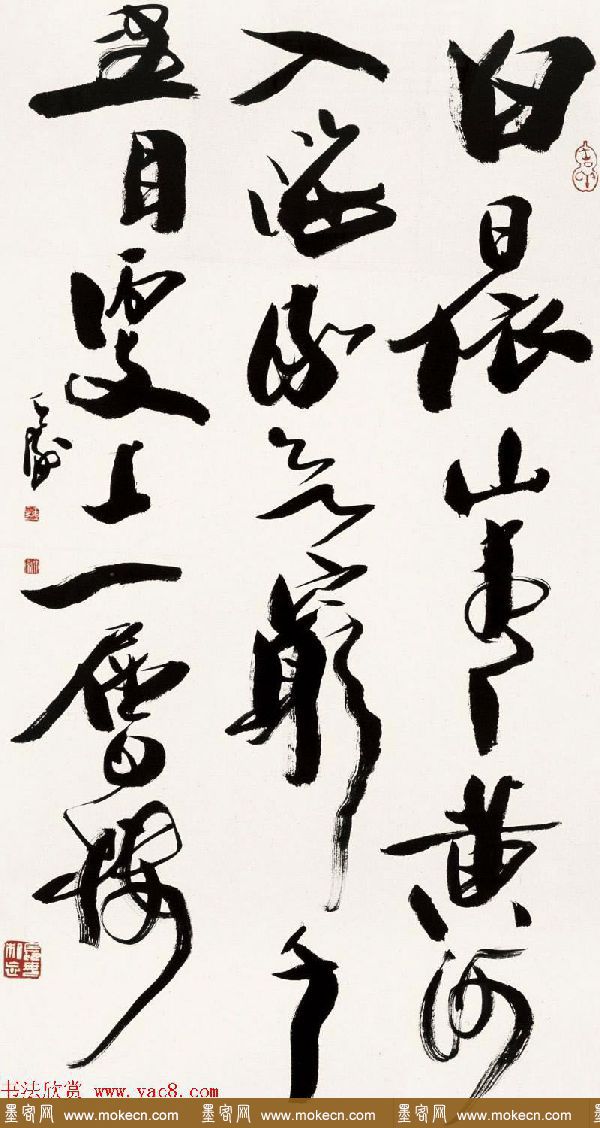 白日依山盡黄河
入海流欲窮千
里目更上一層樓
书法欣赏 www.yac8.com
墨客网 www.mokecn.com 墨客网 www.mokecn.com 墨客网 www.mokecn.com